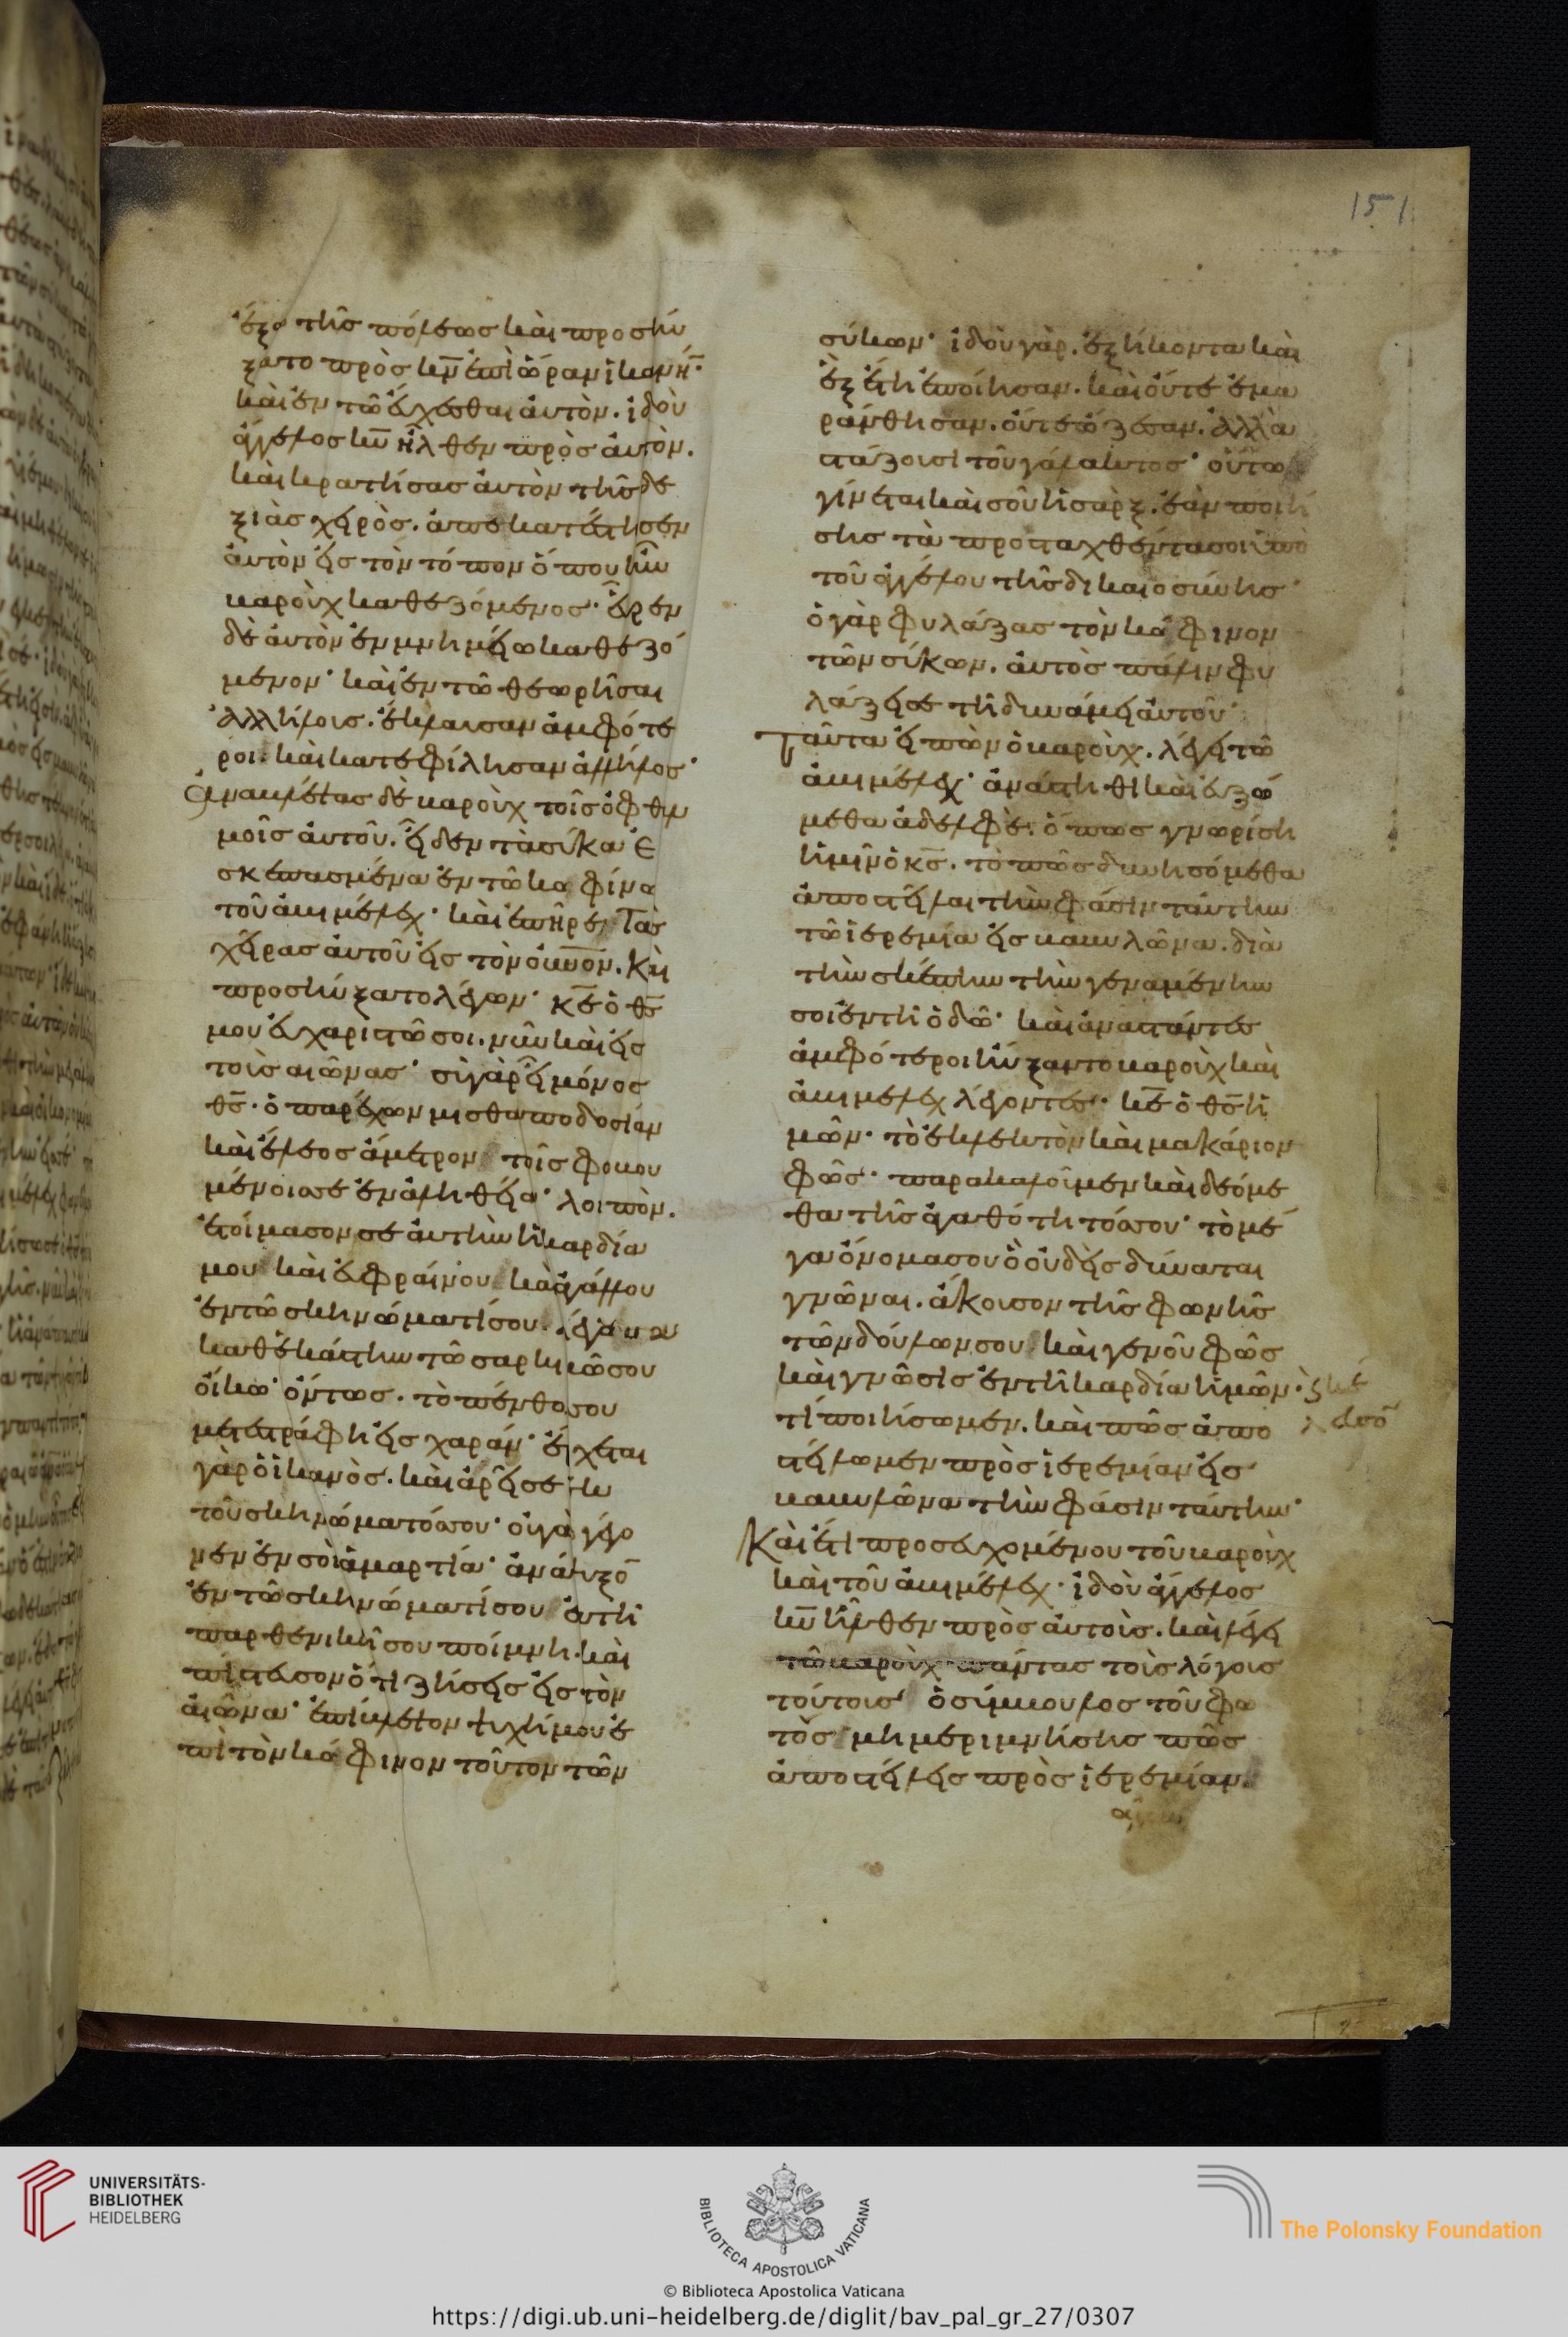 151
ἔξω τῆς πόλεως καὶ προσηύ
ξατο πρὸς κν̅ ἐπὶ ὥραν ἱκανήν·
καὶ ἐν τῶ εύχεσθαι ἀυτὸν. ἰδοὺ
ἄγγελος κυ̅ ἦλθεν πρὸς ἀυτὸν.
καὶ κρατήσας ἀυτὸν τῆς δε
ξιὰς χειρὸς. ἀπεκατέστησεν
ἀυτὸν εἰς τὸν τόπον ὅπου ἦν
βαροὺχ καθεζόμενος· εὗρεν
δὲ ἀυτὸν ἐν μνημείω καθεζό
μενον· καὶ ἐν τῶ θεωρῆσαι
ἀλλήλοις. ἔκλαυσαν ἀμφότε
ροι. καὶ κατεφίλησαν ἀλλήλους·
Ἀναβλέψας δὲ βαροὺχ τοῖς ὀφθαλ
μοῖς ἀυτοῦ. εἶδεν τὰ σύκα ἐ
σκεπασμένα ἐν τῶ κοφίνω
τοῦ ἀβιμέλεχ· καὶ ἐπῆρε τὰς
χεῖρας ἀυτοῦ εἰς τὸν ὀυν̅ον. καὶ
προσηύξατο λέγων· κε̅ ὁ θς̅
μου ευχαριστῶ σοι. νῦν καὶ εἰς
τοὺς αιῶνας· σὺ γὰρ εἶ μόνος
θς̅. ὁ παρέχων μισθαποδοσίαν
καὶ ἔλεος ἄμετρον τοῖς φοβου
μένοις σε ἐν ἀληθεία· λοιπὸν.
ἑτοίμασον σεἀυτὴν ἡ καρδία
μου καὶ ευφραίνου καὶ ἀγάλλου
ἐν τῶ σκηνώματί σου. λέγω
καθέκάστην τῶ σαρκικῶ σου
οἴκω· ὄντως. τὸ πένθος σου
μετεστράφη εἰς χαράν· ἔρχεται
γὰρ ὁ ἱκανὸς. καὶ ἀρεῖ σε ἐκ
τοῦ σκηνώματός σου· οὐ γὰ γέγο
νεν ἐν σοὶ ἁμαρτία· ἀνάψυξον
ἐν τῶ σκηνώματί σου ἐν τῆ
παρθενικῆ σου ποίμνη. καὶ
πίστευσον ὅτι ζήσεις εἰς τὸν
ἀιῶνα· ἐπίβλεψον ψυχή μου ἐ
πὶ τὸν κόφινον τοῦτον τῶν
σύκων· ἰδοὺ γὰρ. ἑξήκοντα καὶ
ἓξ ἔτη ἐποίησαν. καὶ ούτε ἐμα
ράνθησαν. ούτε ώζεσαν. ἀλλὰ
στάζουσι τοῦ γάλακτος· ούτω
γίνεται καὶ σοῦ ἡ σάρξ. ἐὰν ποιή
σης τὰ προσταχθέντα σοι ὑπὸ
τοῦ ἀγγέλου τῆς δικαιοσύνης·
ὁ γὰρ φυλάξας τὸν κόφινον
τῶν σύκων. ἀυτὸς πάλιν φυ
λάξει σε τῆ δυνάμει ἀυτοῦ·
Ταῦτα εἰπὼν ὁ βαροὺχ. λέγει τῶ
ἀβιμέλεχ· ἀνάστηθι καὶ ευξώ
μεθα ἀδελφὲ. ὅπως γνωρίση
ἡμῖν ὁ κς̅. τὸ πῶς δυνησόμεθα
ἀποστεῖλαι τὴν φάσιν ταύτην
τῶ ἱερεμία εἰς βαβυλῶνα. διὰ
τὴν σκέπην τὴν γεναμένην
σοι ἐν τῆ ὁδῶ· καὶ ἀναστάντες
ἀμφότεροι ηύξαντο βαροὺχ καὶ
ἀβιμέλεχ λέγοντες· κε̅ ὁ θς̅ ἡ
μῶν· τὸ ἐκλεκτὸν καὶ μακάριον
φῶς· παρακαλοῦμεν καὶ δεόμε
θα τῆς ἀγαθότητός σου· τὸ μέ
γα όνομα σου ὃ ουδεὶς δύναται
γνῶναι. ἄκουσον τῆς φωνῆς
τῶν δούλων σου καὶ γενοῦ φῶς
καὶ γνῶσις ἐν τῆ καρδία ἡμῶν·
τί ποιήσωμεν. καὶ πῶς ἀπο
στείλωμεν πρὸς ἱερεμίαν εἰς
βαβυλῶνα τὴν φάσιν ταύτην·
Καὶ ἔτι προσευχομένου τοῦ βαροὺχ
καὶ τοῦ ἀβιμέλεχ· ἰδοὺ ἄγγελος
κυ̅ ἦλθεν πρὸς ἀυτοὺς. καὶ λέγει
τῶ βαροὺχ πάντας τοὺς λόγους
τούτους· ὁ σύμβουλος τοῦ φω
τὸς μὴ μεριμνήσης πῶς
ἀποστείλεις πρὸς ἱερεμίαν.
UNIVERSITÄTS-
BIBLIOTHEK
HEIDELBERG
BIBLIOTECA APOSTOLICA VATICANA
The Polonsky Foundation
© Biblioteca Apostolica Vaticana
https://digi.ub.uni-heidelberg.de/diglit/bav_pal_gr_27/0307